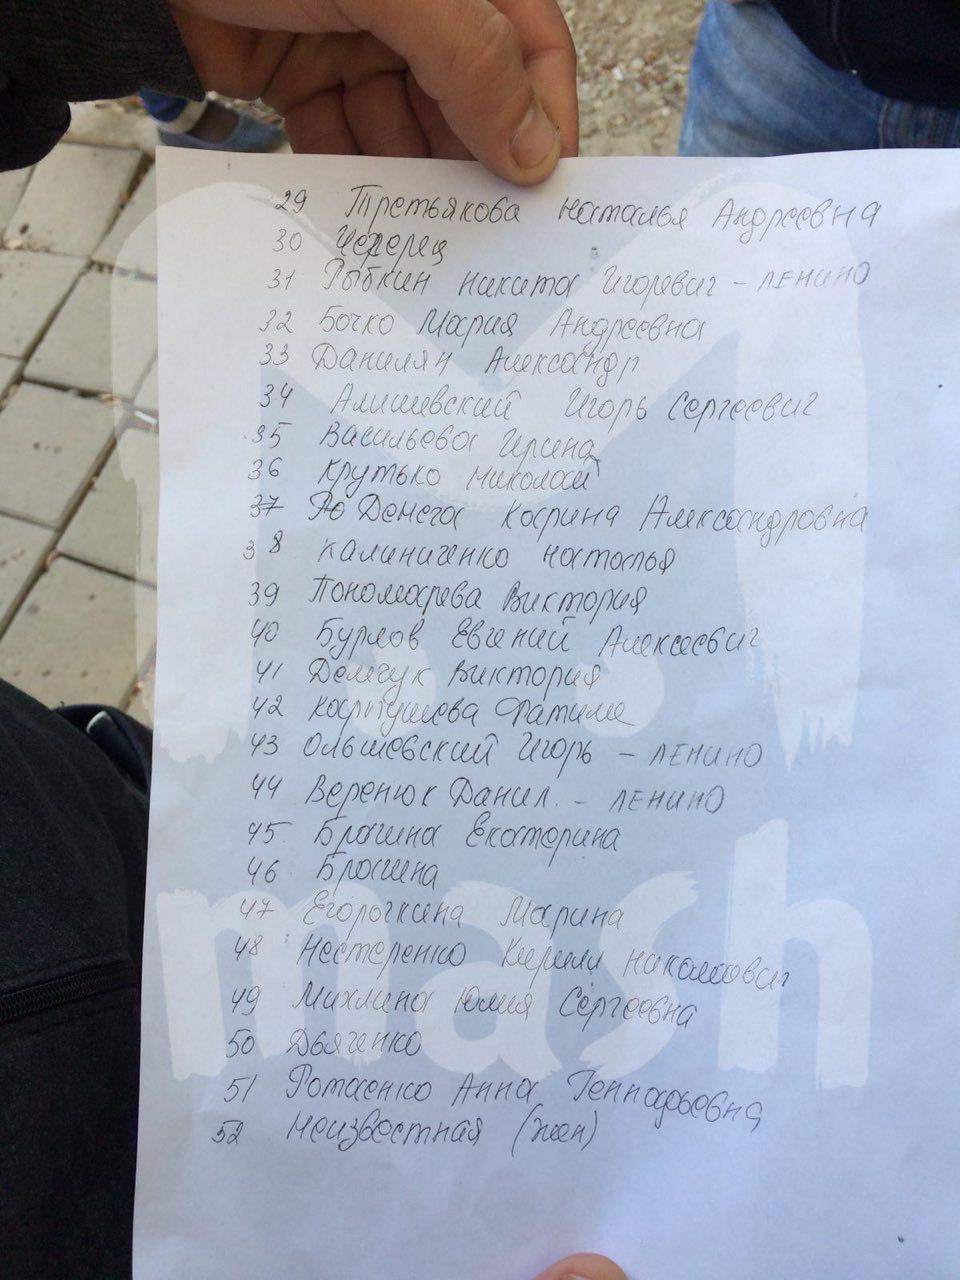 29 Третьякова Наталья Андреевна
30 Черерец
31 Рыбкин Никита Игоревич - ЛЕНИНО
32 Бочко Мария Андреевна
33 Данилян Александр
34 Алишевский Игорь Сергеевич
35 Васильева Ирина
36 Крутько Николай
37 Денега Карина Александровна
38 Калиниченко Наталья
39 Пономарева Виктория
40 Бурлов Евгений Алексеевич
41 Демчук Виктория
42 Карпушева Фатиме
43 Ольшевский Игорь - ЛЕНИНО
44 Веренюк Данил. - ЛЕНИНО
45 Брагина Екатерина
46 Брагина
47 Егорочкина Марина
48 Нестеренко Кирилл Николаевич
49 Михлина Юлия Сергеевна
50 Дьяченко
51 Анна Геннадьевна
52 Неизвестная (жен)
mash